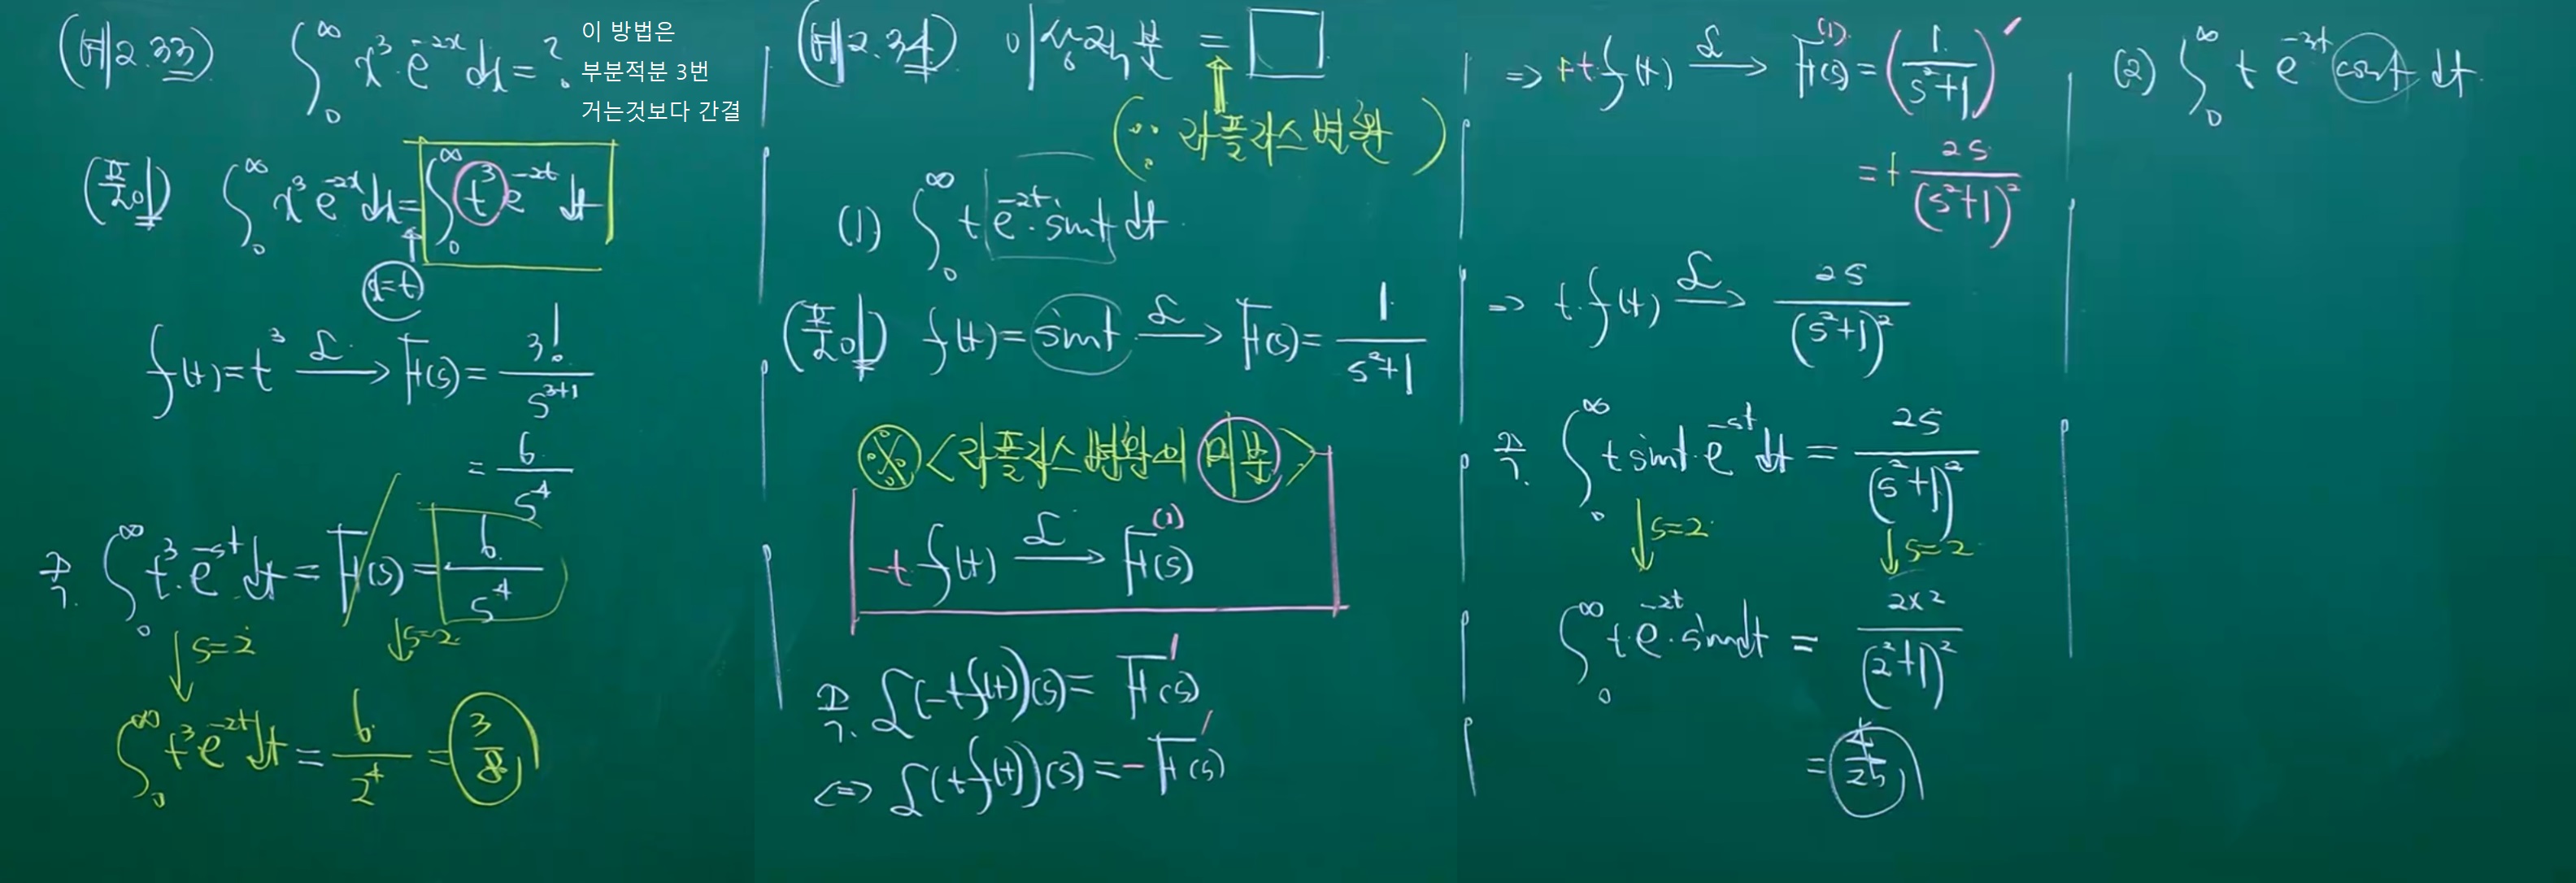 (예2.33) ∫₀^∞ x³·e^(-2x) dx = ?
이 방법은
부분적분 3번
거는것보다 간결
(풀이) ∫₀^∞ x³e^(-2x) dx = ∫₀^∞ t³e^(-2t) dt
x=t
f(t)=t³ →ℒ F(s) = 3!/s^(3+1)
= 6/s⁴
즉. ∫₀^∞ t³·e^(-st) dt = F(s) = 6/s⁴
↓s=2 ↓s=2
∫₀^∞ t³e^(-2t) dt = 6/2⁴ = 3/8
(예2.34) 이상적분 = □
(∵ 라플라스변환)
(1) ∫₀^∞ t e^(-2t)·sint dt
(풀이) f(t)= sint →ℒ F(s)= 1/(s²+1)
※ <라플라스변환의 미분>
-t·f(t) →ℒ F⁽¹⁾(s)
즉. ℒ(-tf(t))(s) = F'(s)
⇔ ℒ(tf(t))(s) = -F'(s)
⇒ +t·f(t) →ℒ F⁽¹⁾(s) = (1/(s²+1))'
= + 2s/(s²+1)²
⇒ t·f(t) →ℒ 2s/(s²+1)²
즉. ∫₀^∞ t sint·e^(-st) dt = 2s/(s²+1)²
↓s=2 ↓s=2
∫₀^∞ t·e^(-2t)·sint dt = 2×2/(2²+1)²
= 4/25
(2) ∫₀^∞ t e^(-3t) cost dt